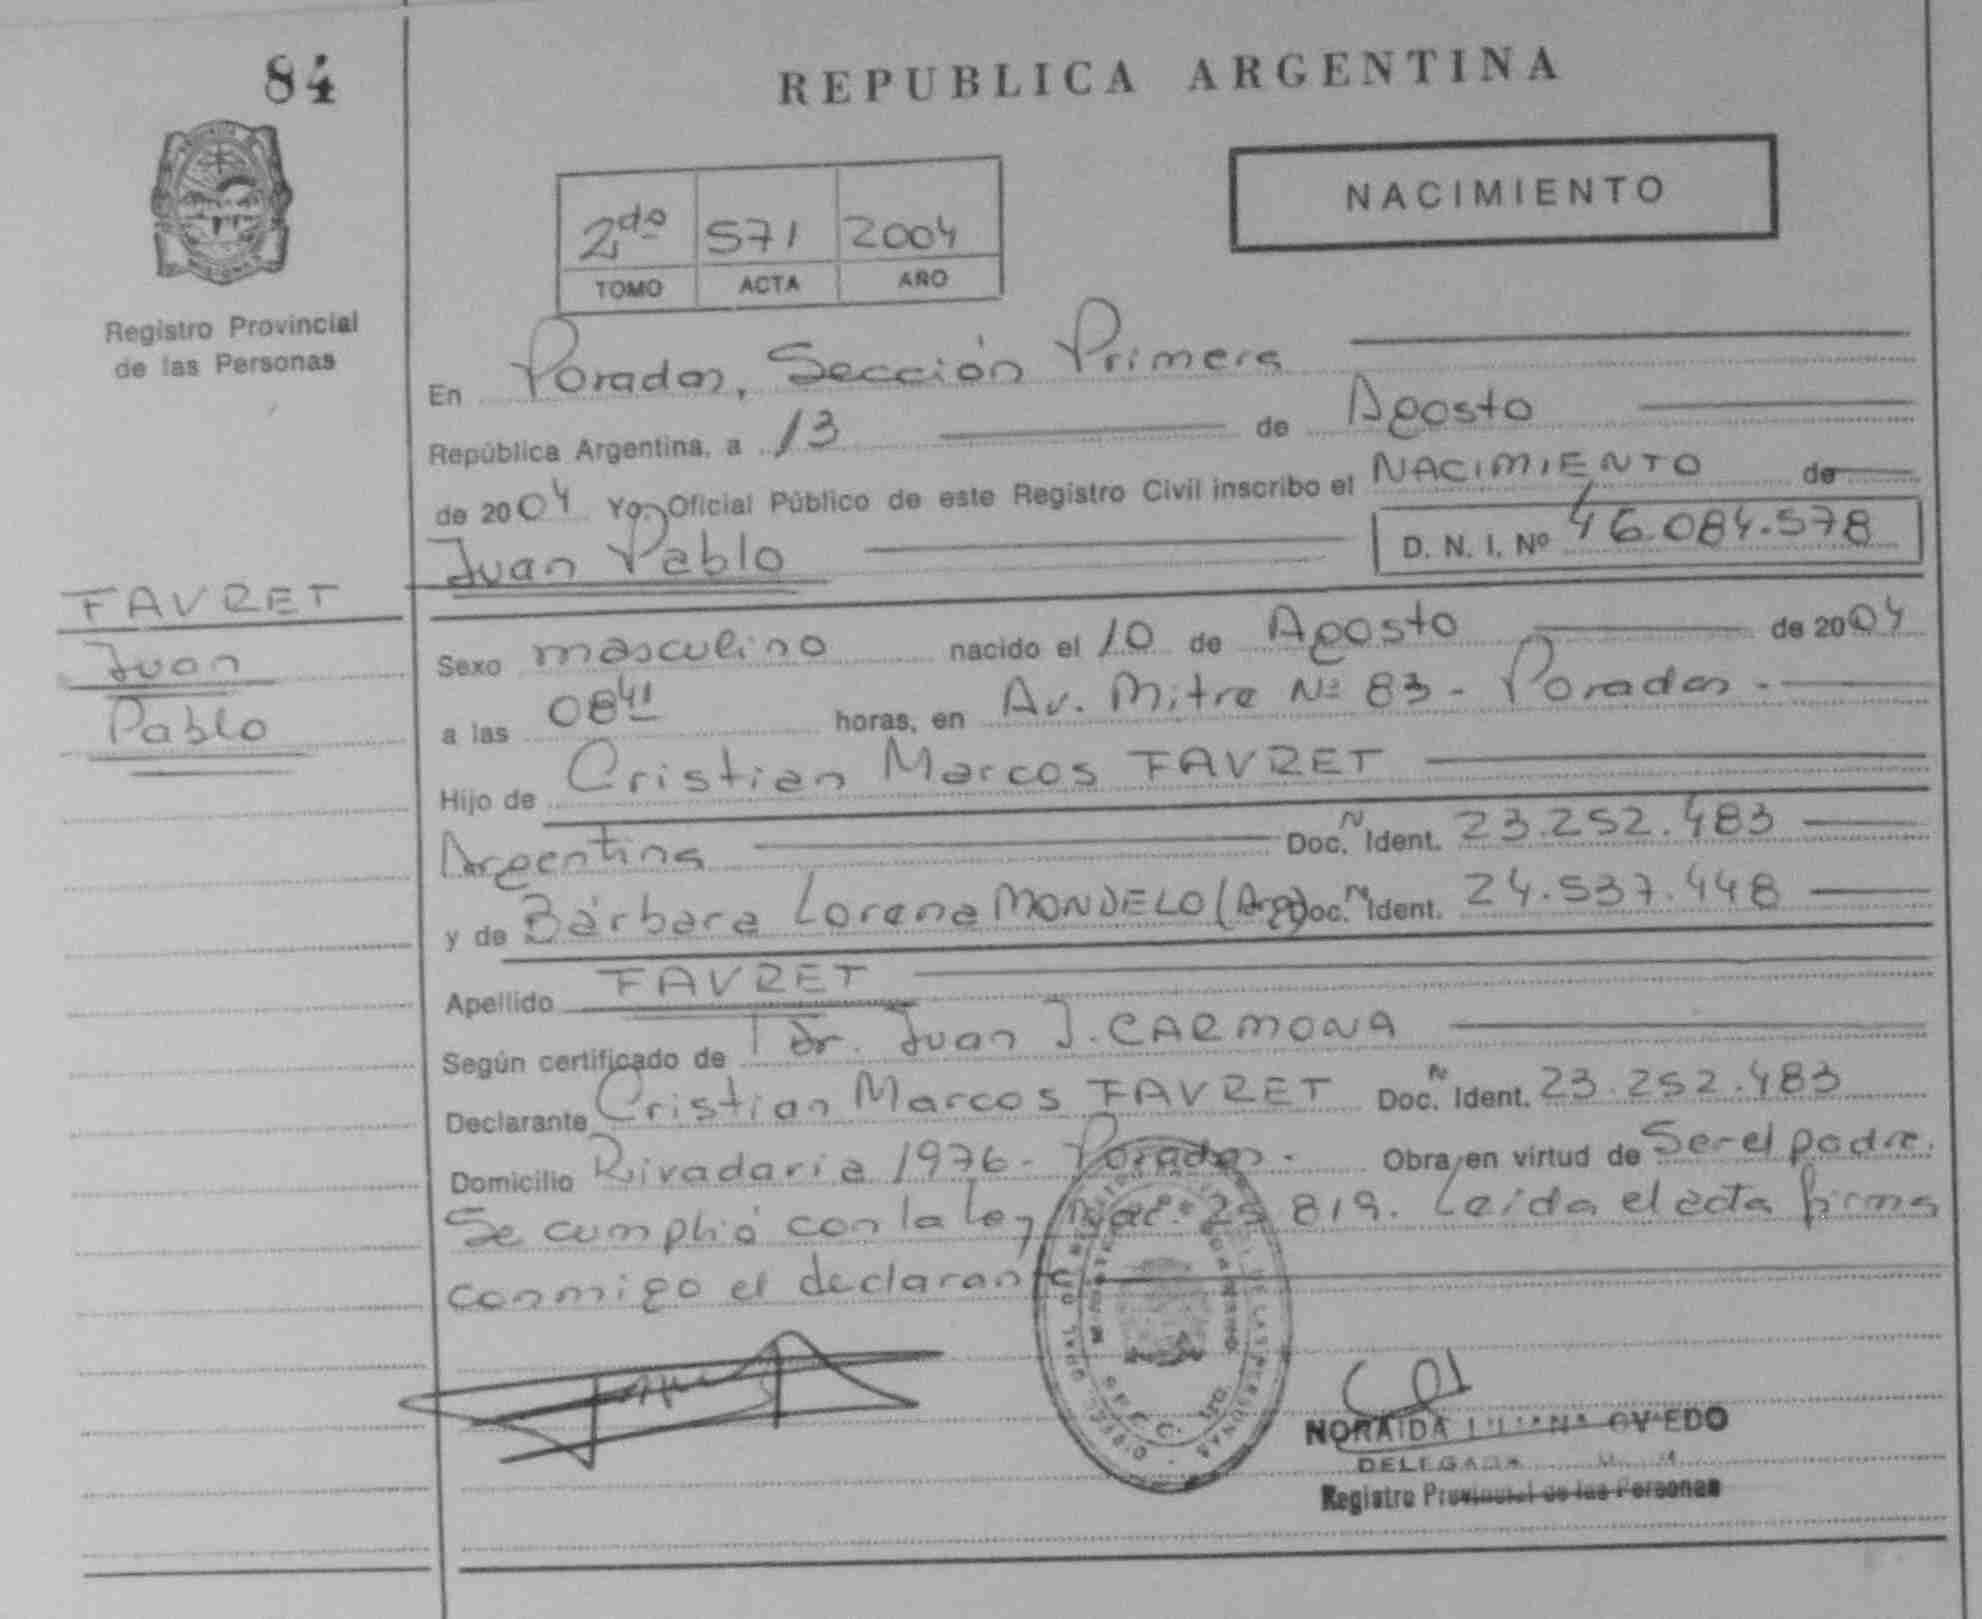 84
REPUBLICA ARGENTINA
NACIMIENTO
2do 571 2004
TOMO ACTA AÑO
Registro Provincial
de las Personas
En Posadas, Sección Primera
República Argentina, a 13 de Agosto
de 2004 Yo, Oficial Público de este Registro Civil inscribo el NACIMIENTO de
Juan Pablo D. N. I. Nº 46.084.578
FAVRET
Juan
Pablo
Sexo masculino nacido el 10 de Agosto de 2004
a las 08 41 horas, en Av. Mitre Nº 83 - Posadas -
Hijo de Cristian Marcos FAVRET
Argentina Doc. N Ident. 23.252.483
y de Bárbara Lorena MONDELO (Arg) Doc. N Ident. 24.537.448
Apellido FAVRET
Según certificado de Dr. Juan J. CARMONA
Declarante Cristian Marcos FAVRET Doc. N Ident. 23.252.483
Domicilio Rivadavia 1976 - Posadas - Obra en virtud de Ser el padre.
Se cumplió con la Ley Nac. 25.819. Leída el acta firma
conmigo el declarante
NORAIDA LILIANA OVIEDO
DELEGADA
Registro Provincial de las Personas